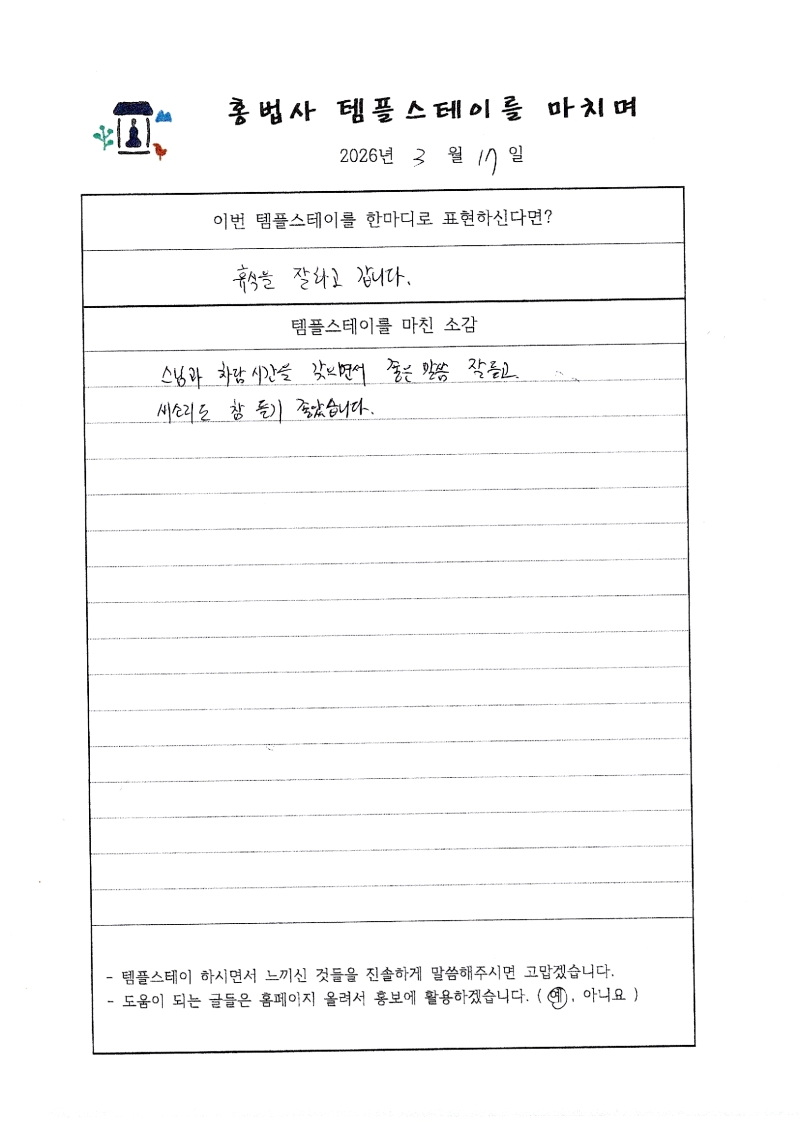 홍법사 템플스테이를 마치며
2026년 3 월 17 일
이번 템플스테이를 한마디로 표현하신다면?
휴식을 잘하고 갑니다.
템플스테이를 마친 소감
스님과 차담시간을 갖으면서 좋은 말씀 잘듣고
새소리도 참 듣기 좋았습니다.
- 템플스테이 하시면서 느끼신 것들을 진솔하게 말씀해주시면 고맙겠습니다.
- 도움이 되는 글들은 홈페이지 올려서 홍보에 활용하겠습니다. ( 예 , 아니요 )